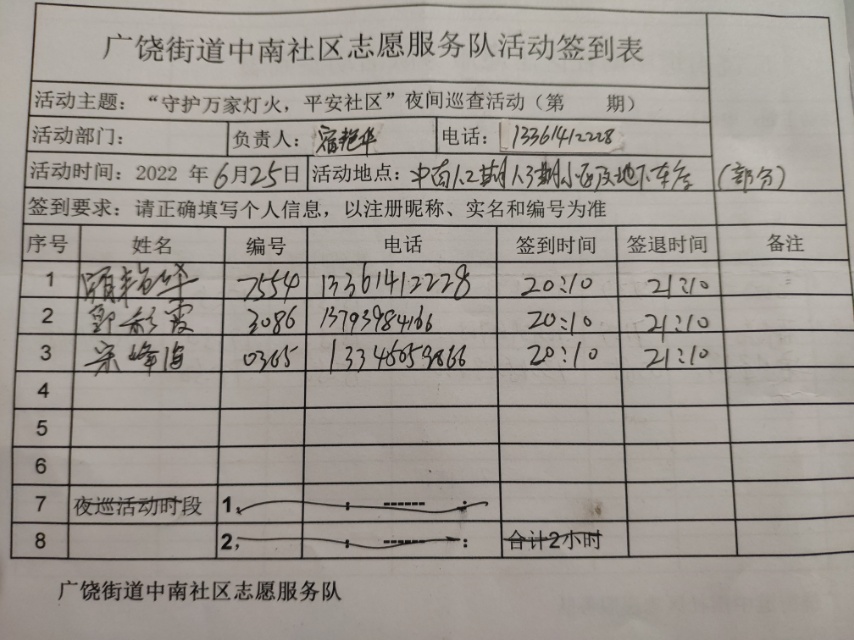 广饶街道中南社区志愿服务队活动签到表
活动主题：“守护万家灯火，平安社区”夜间巡查活动（第 期）
活动部门： 负责人：宿艳华 电话：13361412228
活动时间：2022 年 6月25日 活动地点：中南1.2期1.3期小区及地下车库（部分）
签到要求：请正确填写个人信息，以注册昵称、实名和编号为准
序号 姓名 编号 电话 签到时间 签退时间 备注
1 艳华 7554 13361412228 20:10 21:10
2 郭彩霞 3086 13793984166 20:10 21:10
3 宋峰海 0365 20:10 21:10
4
5
6
7 夜巡活动时段 1, : ------ :
8 2, : ------ : 合计2小时
广饶街道中南社区志愿服务队